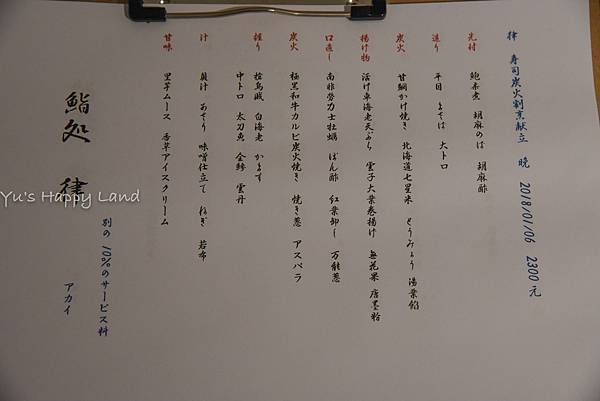 律 寿司炭火割烹献立 晩 2018/01/06 2300元
先付
鮑柔煮 胡麻のは 胡麻酢
造り
平目 よそは 大トロ
炭火
甘鯛かけ焼き 北海道七星米 とうみょう 湯葉餡
揚げ物
活け車海老天ぷら 雲子大葉巻揚げ 無花果 唐墨粉
口直し
南非勞力士牡蠣 ぽん酢 紅葉卸し 万能葱
炭火
極黒和牛カルビ炭火焼き 焼き葱 アスパラ
握り
桧烏賊 白海老 かます
中トロ 太刀魚 金鯵 雲丹
汁
貝汁 あさり 味噌仕立て ねぎ 若布
甘味
里芋ムース 香草アイスクリーム
鮨処 律
別の 10%のサービス料
アカイ
Yu's Happy Land